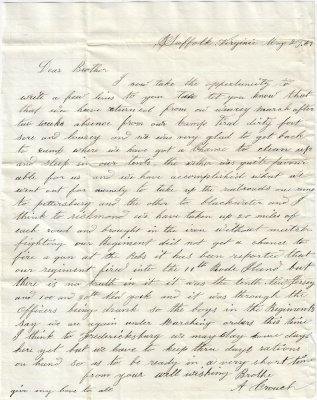 Suffolk Virginia May 27, 63
Dear Brother
I now take the oppertunity to
write a few lines to you to let you know that
that we have returned from our weary march after
two weeks absence from our Camp tired dirty foot
sore and lousey and we was very glad to get back
to camp where we have got a chance to clean up
and sleep in our tents the wether was quit favour
able for us and we have accomplished what we
went out for mainly to take up the railroads one runing
to petersburg and the other to blackwater and I
think to richmond we have taken up 20 miles of
each road and brought in the iron without much
fighting our Regiment did not get a chance to
fire a gun at the Rebs it has been reported that
our regiment fired into the 11th Rode Island but
there is no truth in it it was the tenth New Jersey
and 100 and 70th New york and it was through the
officers being drunk so the boys in the Regiments
Say we are again under Marching orders this time
I think to fredericksburg we may Stay Some days
here yet but we have to keep three days rations
on hand so as to be ready in a very short time
from your well wishing Brother
give my love to all A Crouch